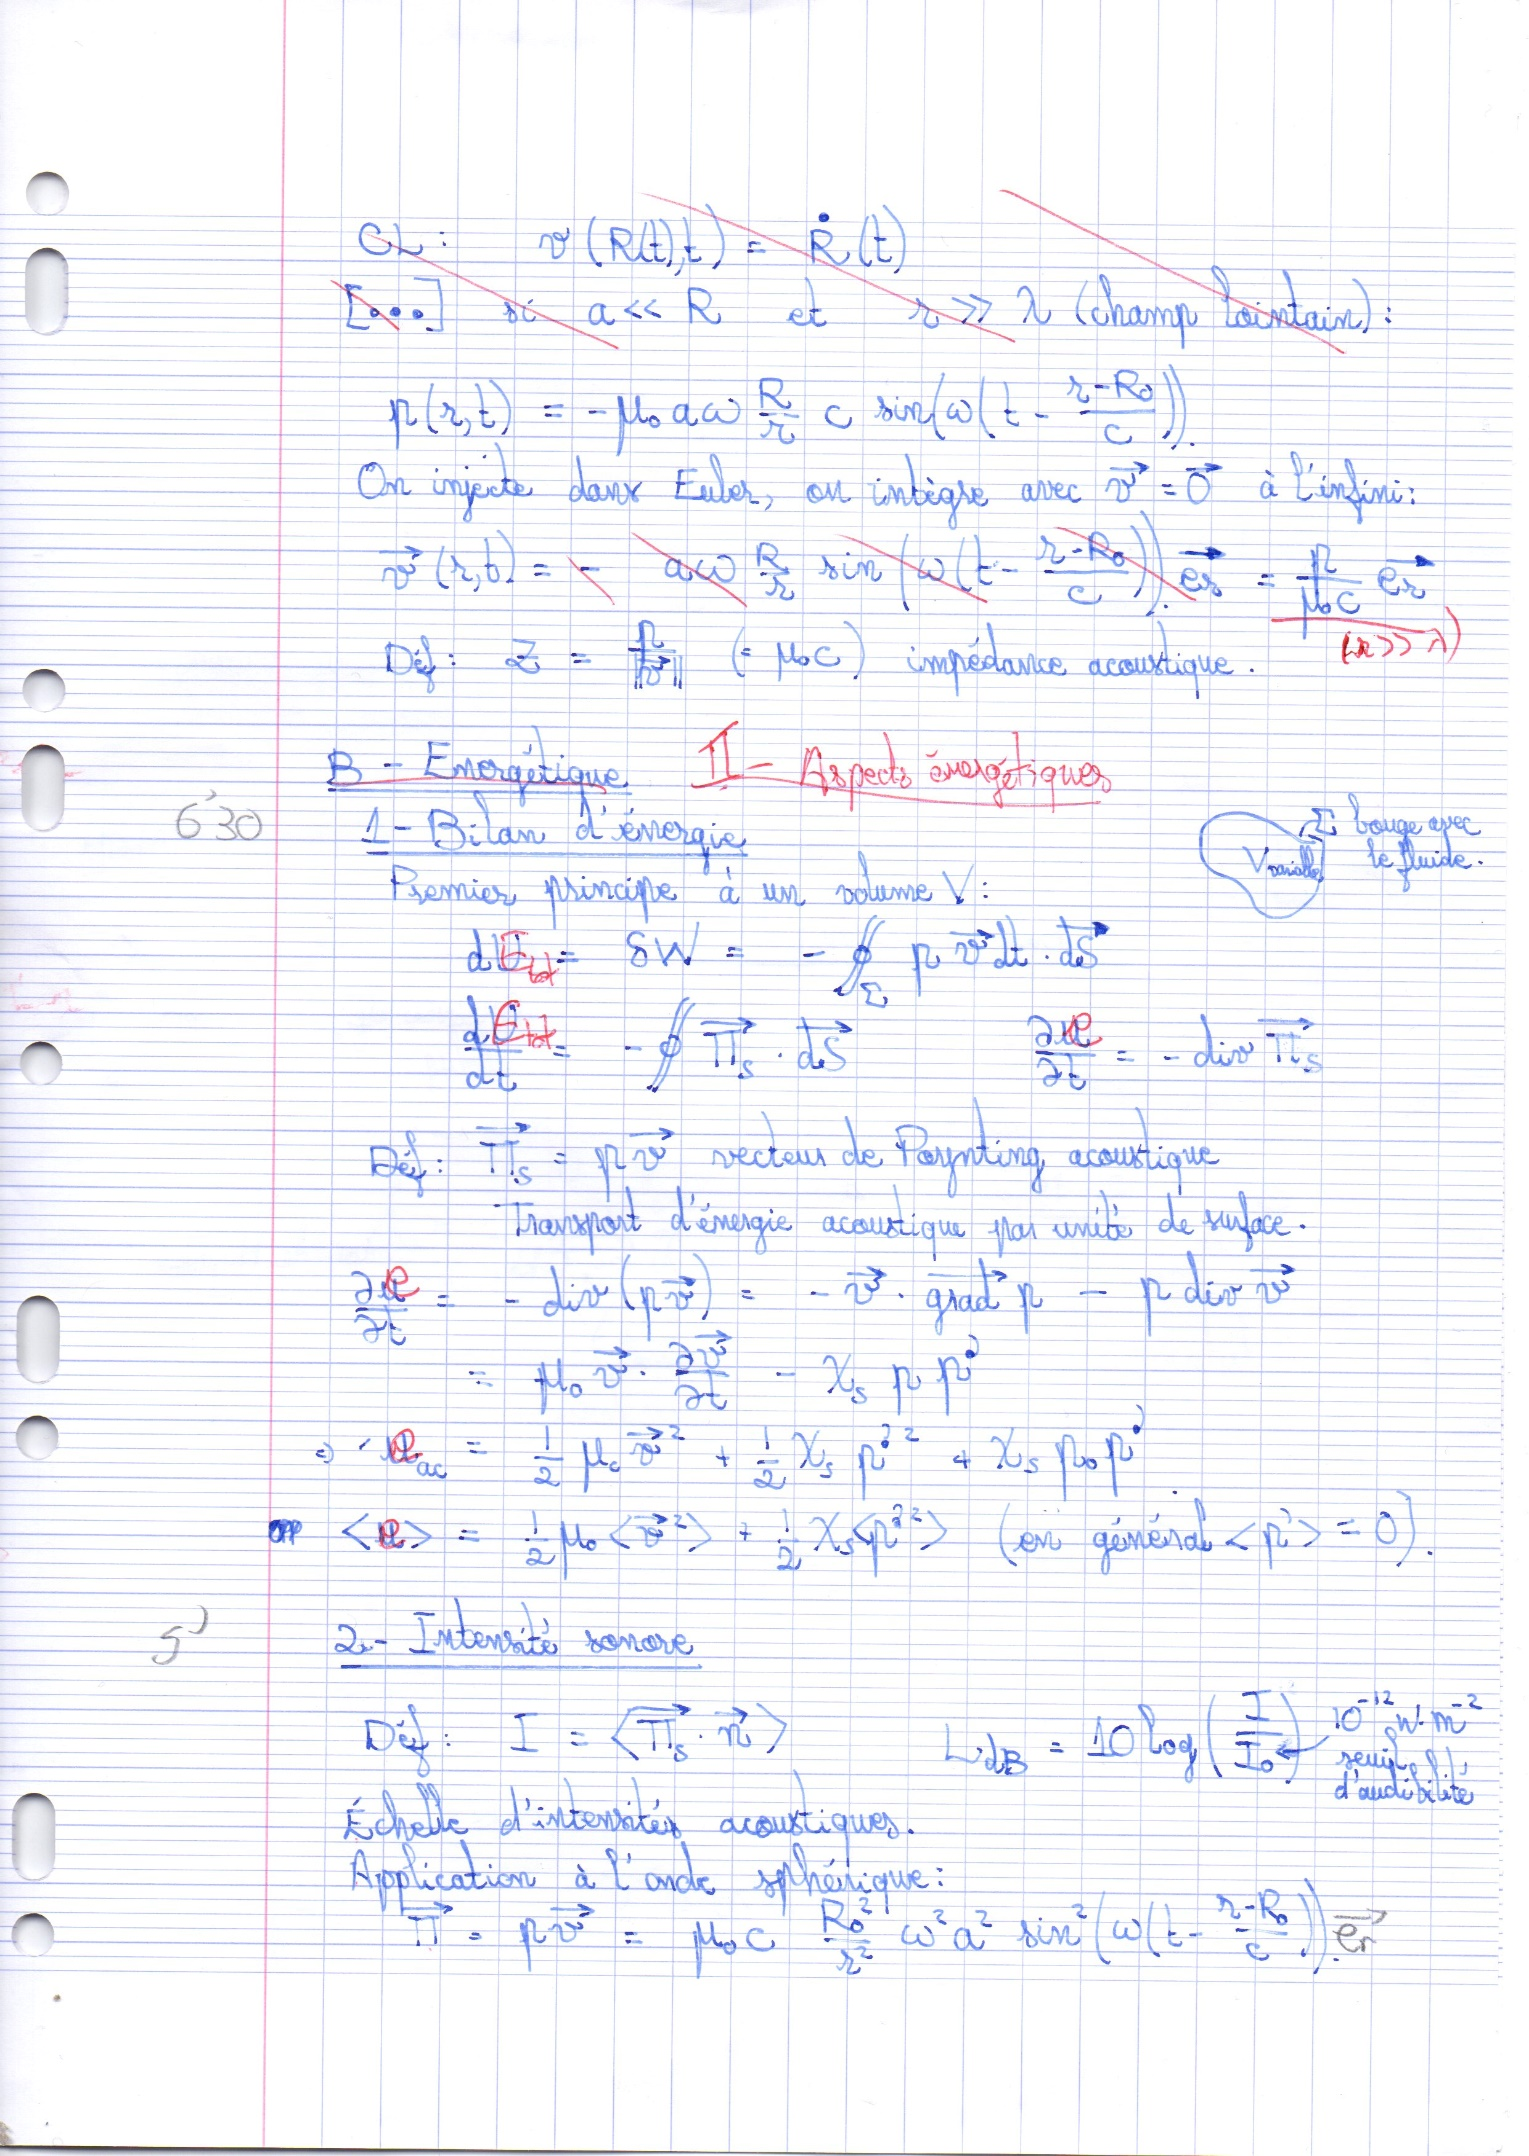 CL : v(R(t),t) = Ṙ(t)
[...] si a << R et r >> λ (champ lointain) :
p(r,t) = -μ₀ aω R/r c sin(ω(t - (r-R₀)/c)).
On injecte dans Euler, on intègre avec v⃗ = 0⃗ à l'infini :
v⃗(r,t) = - aω R/r sin(ω(t - (r-R₀)/c)). e⃗r = p/(μ₀c) e⃗r
(r >> λ)
Déf : Z = p/||v⃗|| (= μ₀c) impédance acoustique.
B - Energétique II - Aspects énergétiques
6'30
1 - Bilan d'énergie
Σ bouge avec
le fluide.
V variable
Premier principe à un volume V :
dE_tot = δW = - ∯_Σ p v⃗dt · dS⃗
dE_tot/dt = - ∯ Π⃗s · dS⃗ ∂e/∂t = - div Π⃗s
Déf : Π⃗s = p v⃗ vecteur de Poynting acoustique
Transport d'énergie acoustique par unité de surface.
∂e/∂t = - div (p v⃗) = - v⃗ · grad⃗ p - p div v⃗
= μ₀ v⃗ · ∂v⃗/∂t - χs p ṗ
⇒ e_ac = 1/2 μ₀ v⃗² + 1/2 χs p'² + χs p₀ p'.
<e> = 1/2 μ₀ <v⃗²> + 1/2 χs <p'²> (en général <p'> = 0).
5'
2 - Intensité sonore
Déf : I = <Π⃗s · n⃗> L_dB = 10 log(I/I₀) 10⁻¹² W·m⁻²
seuil
d'audibilité
Échelle d'intensités acoustiques.
Application à l'onde sphérique :
Π⃗ = p v⃗ = μ₀ c R₀²/r² ω² a² sin²(ω(t - (r-R₀)/c)). e⃗r